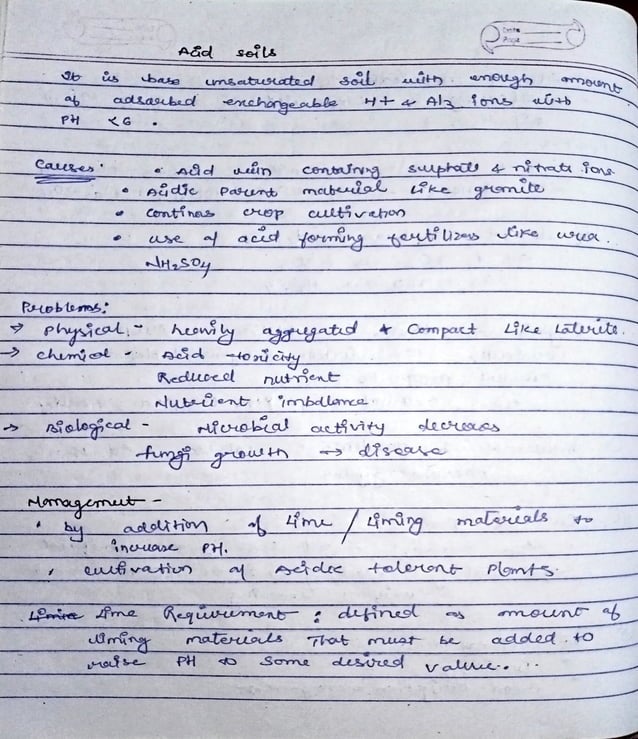 Date
Page
Acid soils
It is base unsaturated soil with enough amount
of adsorbed exchangeable H+ & Al3 ions with
PH <6 .
Causes: • Acid rain containing sulphate & nitrate ions
• Acidic Parent material like granite
• continas crop cultivation
• use of acid forming fertilizers like urea.
NH2SO4
Problems:
→ Physical - heavily aggregated & Compact Like Laterite.
→ chemical - Acid toxicity
Reduced nutrient
Nutrient imbalance
→ Biological - Microbial activity decreases
fungi growth → disease
Management -
• by addition of Lime / Liming materials to
increase PH.
• cultivation of Acidic tolerent Plants.
Lime Requirement : defined as amount of
liming materials That must be added to
raise PH to some desired value.